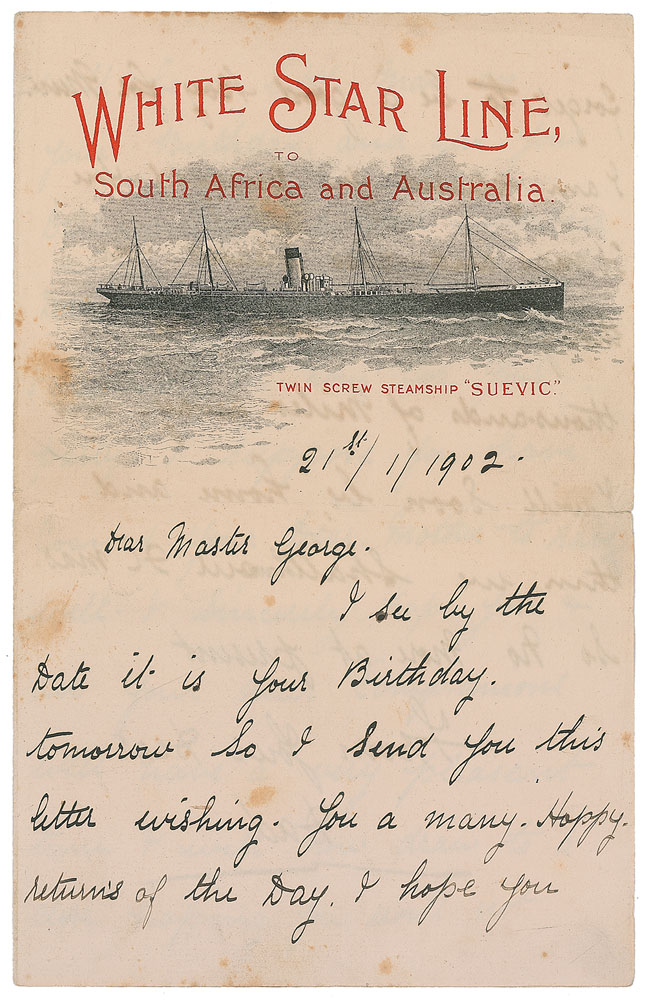 WHITE STAR LINE,
TO
South Africa and Australia.
TWIN SCREW STEAMSHIP "SUEVIC."
21st/1/1902.
Dear Master George.
I see by the
Date it is your Birthday.
tomorrow So I Send you this
letter wishing. you a many. Happy.
returns of the Day. I hope you